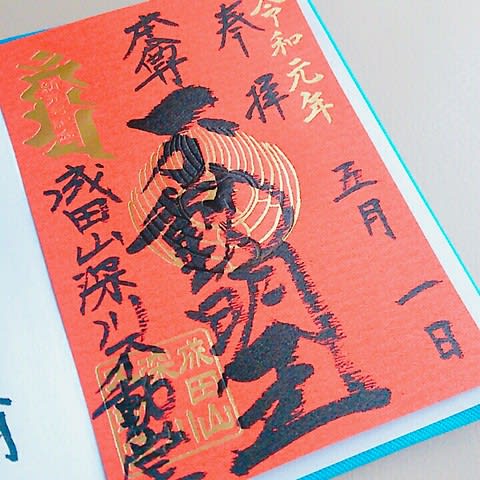 令和元年
五月一日
奉拝
不動明王
本尊
成田山深川不動堂
成田山